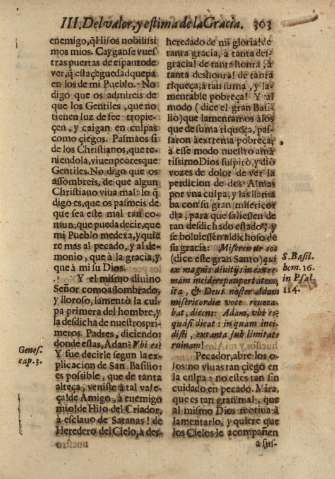 III. Del valor, y estima de la Gracia. 303
enemigo, q̃ Hijos nobilissi
mos mios. Cayganse vues-
tras puertas de espanto de
ver, q̃ esta ceguedad quepa
en los de mi Pueblo. No
digo que os admireis de
que los Gentiles, que no
tienen luz de Fee tropie-
çen, y caigan en culpas
como ciegos. Pasmaos si
de los Christianos, que te-
niendola, viuen peores que
Gentiles. No digo que os
assombreis, de que algun
Christiano viua mal: lo q̃
digo es, que os pasmeis de
que sea este mal tan co-
mun, que pueda decir, que
mi Pueblo me dexa, y quie
re mas al pecado, y al de-
monio, que à la gracia, y
que à mi su Dios.
Y el mismo diuino
Señor como assombrado,
y lloroso, lamentò la cul-
pa primera del hombre, y
la desdicha de nuestros pri-
meros Padres, diciendo:
donde estas, Adan? Vbi es?
Y fue decirle segun la ex-
plicacion de San Basilio:
es possible, que de tanta
alteça, veniste à tal vaxe-
ça! de Amigo, à enemigo
mio! de Hijo del Criador,
à esclauo de Satanas! de
Heredero del Cielo, à des-
Genes.
cap. 3.
heredado de mi gloria! de
tanta gracia, à tanta des-
gracia! de tanta honra, à
tanta deshonra! de tanta
riqueça, à tan suma, y la-
mentable pobreça! Y al
modo (dice el gran Basi-
lio) que lamentamos à los
que de suma riqueça, pas-
saron à extrema pobreça;
à esse modo nuestro aman
tissimo Dios suspirò, y diò
vozes de dolor de ver la
perdicion de dos Almas
por vna culpa, y las llorò
ba con su gran misericor
dia, para que saliessen de
tan desdichado estado, y
se boluiessen à dichoso de
su gracia: Miserens de eos
(dice este gran Santo) qui
ex magnis diuitijs in extre-
mam inciderunt paupertatem,
ita, & Deus noster Adam
misericordiæ voce reuoca-
bat, dicens: Adam, vbi es?
quasi dicat: in quam inci-
disti, ex tanta sublimitate
ruinam!
Pecador, abre los o-
jos: no viuas tan ciego en
la culpa: no estes tan sin
cuidado en pecado. Mira,
que es tan gran mal, que
al mismo Dios motiua à
lamentarlo, y quiere que
los Cielos le acompañen
a sus-
S. Basil.
hom. 16.
in Psal.
114.